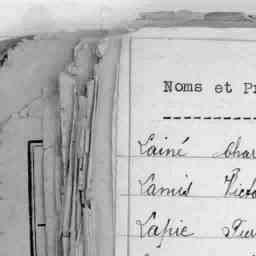 Noms et Pr
Lainé Char
Lamis Victo
Lapie Pier